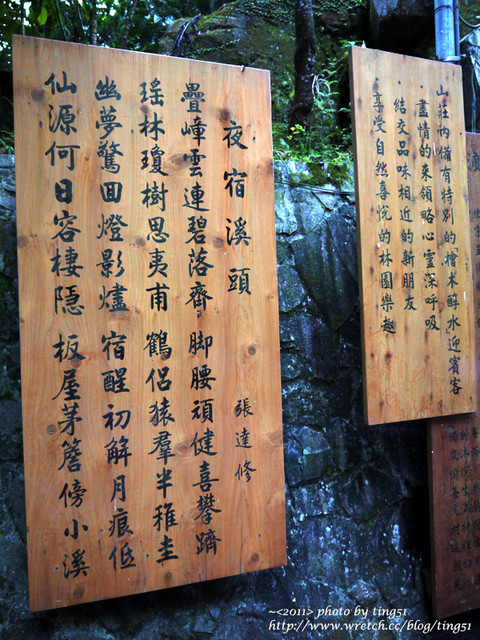 夜宿溪頭 張達修
疊嶂雲連碧落齊 脚腰頑健喜攀躋
瑤林瓊樹思夷甫 鶴侶猿羣半稚圭
幽夢驚回燈影爐 宿醒初解月痕低
仙源何日容棲隱 板屋茅簷傍小溪
山莊內備有特別的檜木醉水迎賓客
盡情的來領略心靈深呼吸
結交品味相近的新朋友
享受自然喜悅的林園樂趣
~<2011> photo by ting51
http://www.wretch.cc/blog/ting51